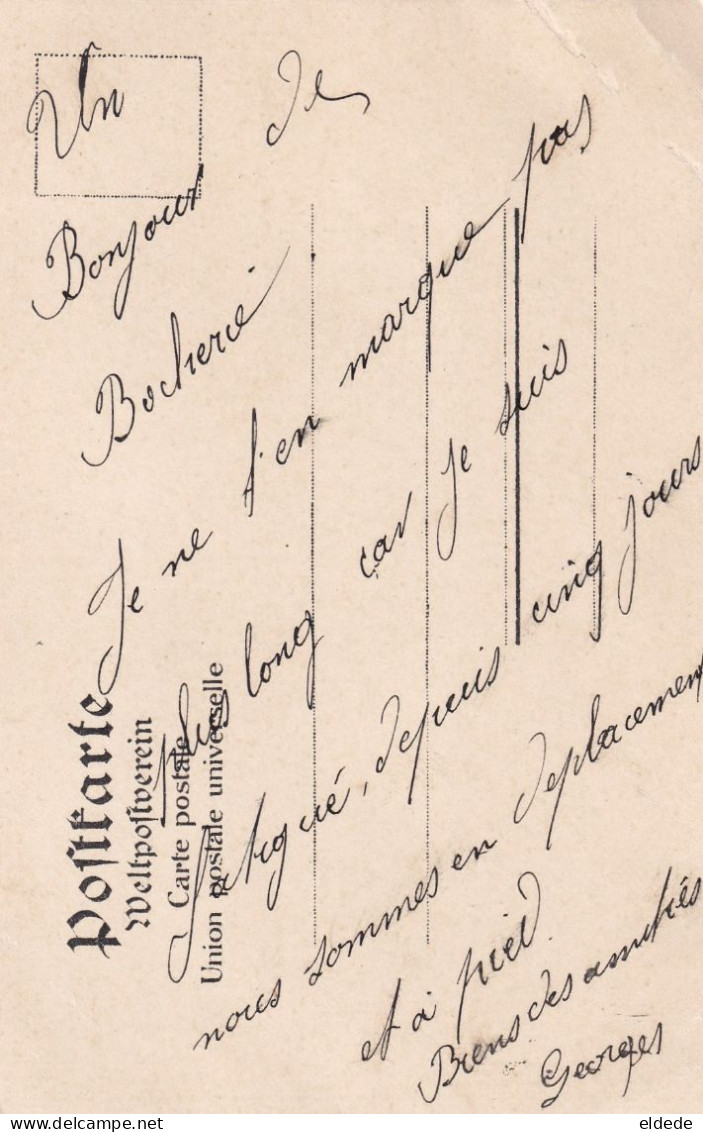 Un
Bonjour de
Bocherie
Je ne t'en marque pas
plus long car je suis
fatigué, depuis cinq jours
nous sommes en deplacement
et à pied.
Biens des amitiés
Georges
Postkarte
Weltpostverein
Carte postale
Union postale universelle
eldede